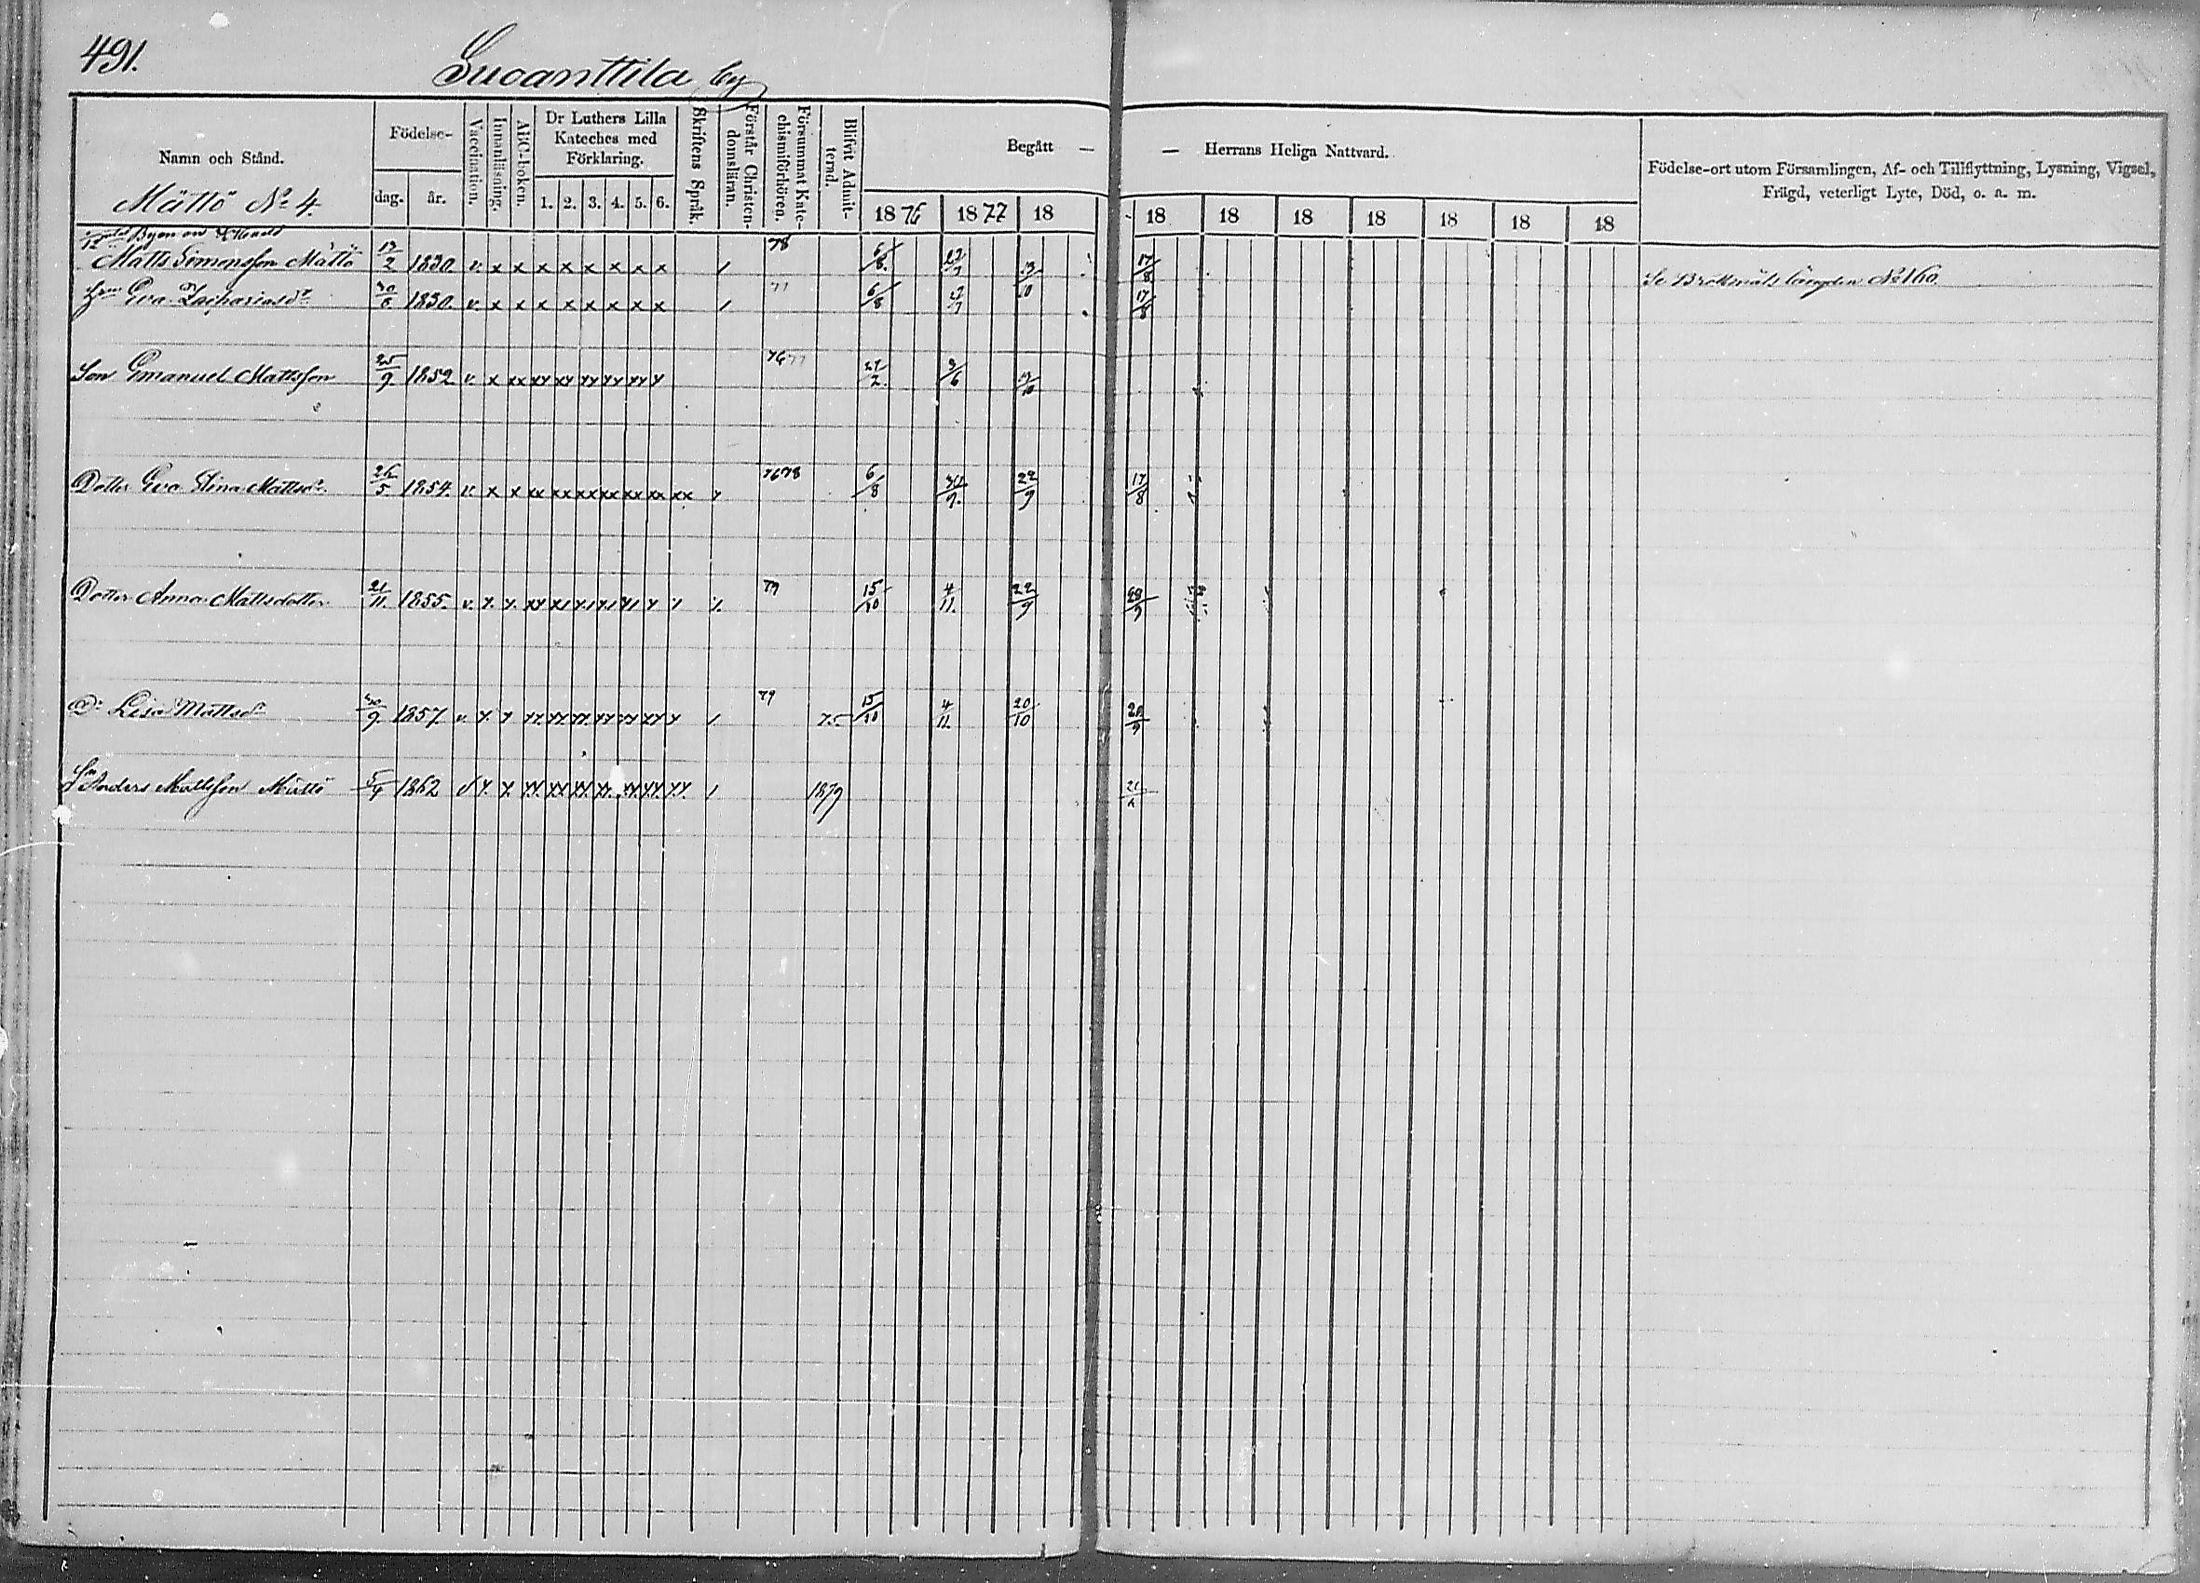 491.
Suoanttila by
Namn och Stånd.
Födelse-
dag. år.
Vaccination.
Innanläsning.
ABC-boken.
Dr Luthers Lilla Kateches med Förklaring.
1. 2. 3. 4. 5. 6.
Skriftens Språk.
Förstår Christendomsläran.
Försummat Katechismiförhören.
Blifvit Admitterad.
Begått — — Herrans Heliga Nattvard.
1876 1877 18 18 18 18 18 18 18 18
Födelse-ort utom Församlingen, Af- och Tillflyttning, Lysning, Vigsel, Frägd, veterligt Lyte, Död, o. a. m.
Mättö No 4.
Matts Simonsson Mättö 17/2 1830. v. x x x x x x x x / 78 6/8 17/8 Se Brottmåls längden No 160.
Eva Zachariasdr 30/8 1830. v. x x x x x x x x / 77 6/8 17/8
Son Emanuel Mattsson 25/9 1852 v. x xx xx xx xx xx xx x 76 77 27/2 3/6
Dotter Eva Stina Mattsdr. 26/5 1854. v. x x xx xx xx xx xx xx xx x 76 78 6/8 30/9. 22/9 17/8
Dotter Anna Mattsdotter 21/11. 1855. v. x. x. xx xx xx xx xx x x x 79 15/10 4/11. 22/9 28/9
Dr Lisa Mattsdr 30/9 1857. v. x. x xx xx xx xx xx xx x / 79 75 15/10 4/11. 20/10 28/9
Sn Anders Mattsson Mättö 5/4 1862 v x. x. xx xx xx xx. xx xx. xx. / 1879